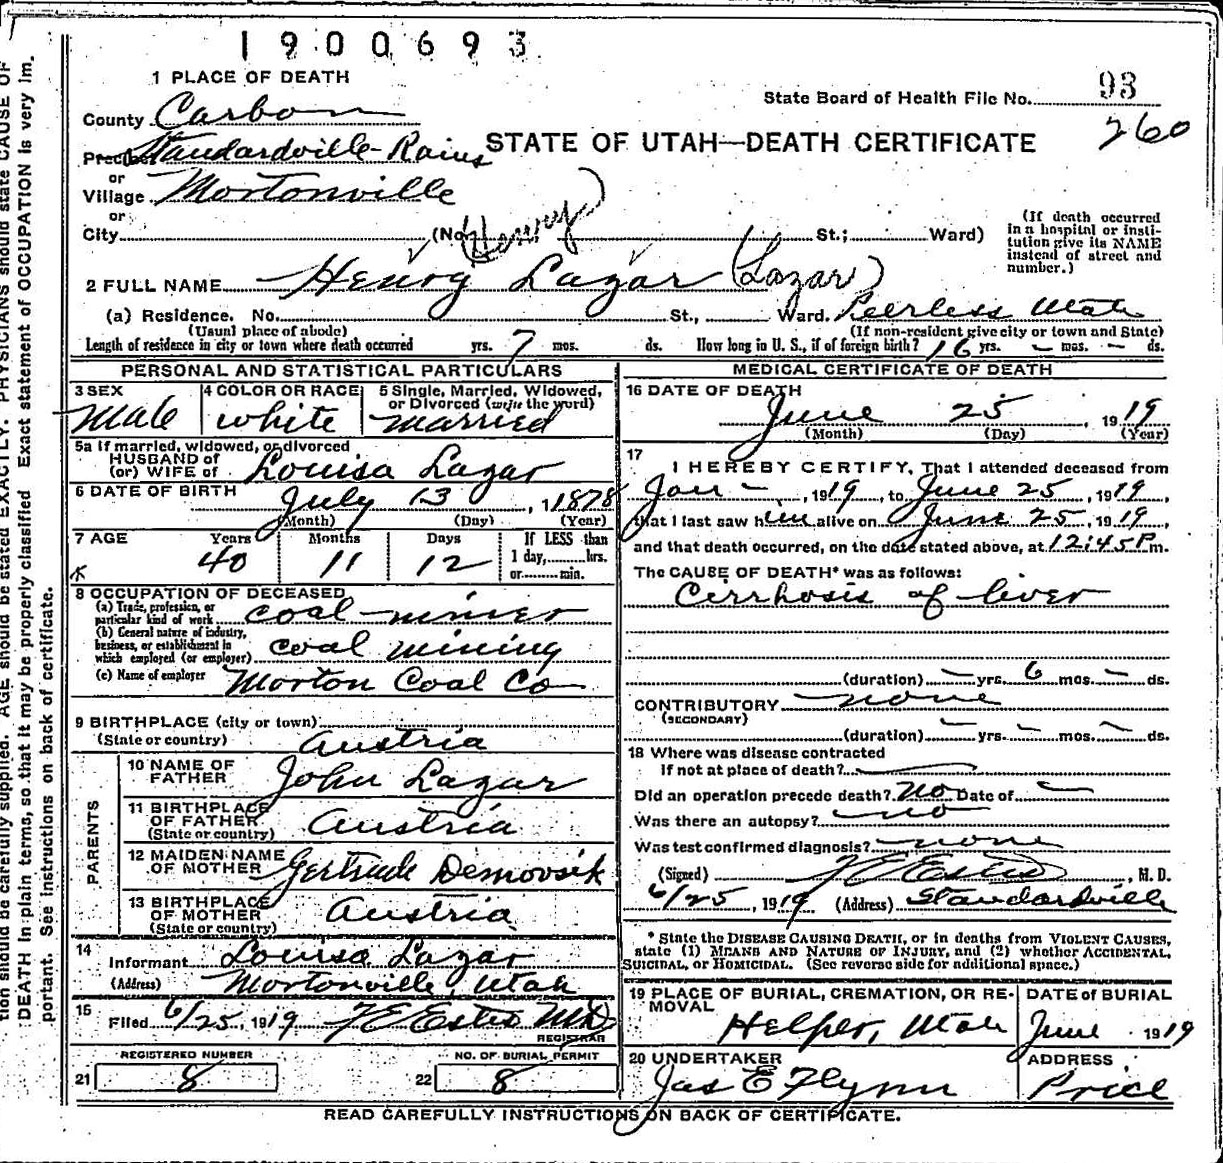 1900693
1 PLACE OF DEATH
State Board of Health File No. 93
260
County Carbon
STATE OF UTAH—DEATH CERTIFICATE
Precinct Standardville-Rains
or
Village Mortonville
or
City (No. (Henry) St.; Ward)
(If death occurred in a hospital or institution give its NAME instead of street and number.)
2 FULL NAME Henry Lazar (Lazar)
(a) Residence. No. St., Ward. Peerless Utah
(Usual place of abode) (If non-resident give city or town and State)
Length of residence in city or town where death occurred yrs. 7 mos. ds. How long in U. S., if of foreign birth? 16 yrs. — mos. — ds.
PERSONAL AND STATISTICAL PARTICULARS
3 SEX
Male
4 COLOR OR RACE
white
5 Single, Married, Widowed, or Divorced (write the word)
married
5a If married, widowed, or divorced
HUSBAND of
(or) WIFE of Louisa Lazar
6 DATE OF BIRTH
July 13, 1878
(Month) (Day) (Year)
7 AGE Years Months Days If LESS than
40 11 12 1 day, hrs.
or min.
8 OCCUPATION OF DECEASED
(a) Trade, profession, or particular kind of work coal miner
(b) General nature of industry, business, or establishment in which employed (or employer) coal mining
(c) Name of employer Morton Coal Co
9 BIRTHPLACE (city or town)
(State or country) Austria
PARENTS
10 NAME OF FATHER John Lazar
11 BIRTHPLACE OF FATHER (State or country) Austria
12 MAIDEN NAME OF MOTHER Gertrude Demovsik
13 BIRTHPLACE OF MOTHER (State or country) Austria
14
Informant Louisa Lazar
(Address) Mortonville, Utah
15
Filed 6/25, 1919 F E Estes MD
REGISTRAR
REGISTERED NUMBER NO. OF BURIAL PERMIT
21 8 22 8
MEDICAL CERTIFICATE OF DEATH
16 DATE OF DEATH
June 25, 1919
(Month) (Day) (Year)
17
I HEREBY CERTIFY, That I attended deceased from
Jan —, 1919, to June 25, 1919,
that I last saw him alive on June 25, 1919,
and that death occurred, on the date stated above, at 12:45 P m.
The CAUSE OF DEATH* was as follows:
Cirrhosis of liver
(duration) — yrs. 6 mos. — ds.
CONTRIBUTORY none
(SECONDARY)
(duration) — yrs. — mos. — ds.
18 Where was disease contracted
if not at place of death? —
Did an operation precede death? no Date of —
Was there an autopsy? no
Was test confirmed diagnosis? none
(Signed) F E Estes, M. D.
6/25, 1919 (Address) Standardville
* State the DISEASE CAUSING DEATH, or in deaths from VIOLENT CAUSES,
state (1) MEANS AND NATURE OF INJURY, and (2) whether ACCIDENTAL,
SUICIDAL, or HOMICIDAL. (See reverse side for additional space.)
19 PLACE OF BURIAL, CREMATION, OR REMOVAL
Helper, Utah
DATE of BURIAL
June 1919
20 UNDERTAKER
Jas E Flynn
ADDRESS
Price
READ CAREFULLY INSTRUCTIONS ON BACK OF CERTIFICATE.
tion should be carefully supplied. AGE should be stated EXACTLY. PHYSICIANS should state CAUSE OF
DEATH in plain terms, so that it may be properly classified. Exact statement of OCCUPATION is very im-
portant. See instructions on back of certificate.